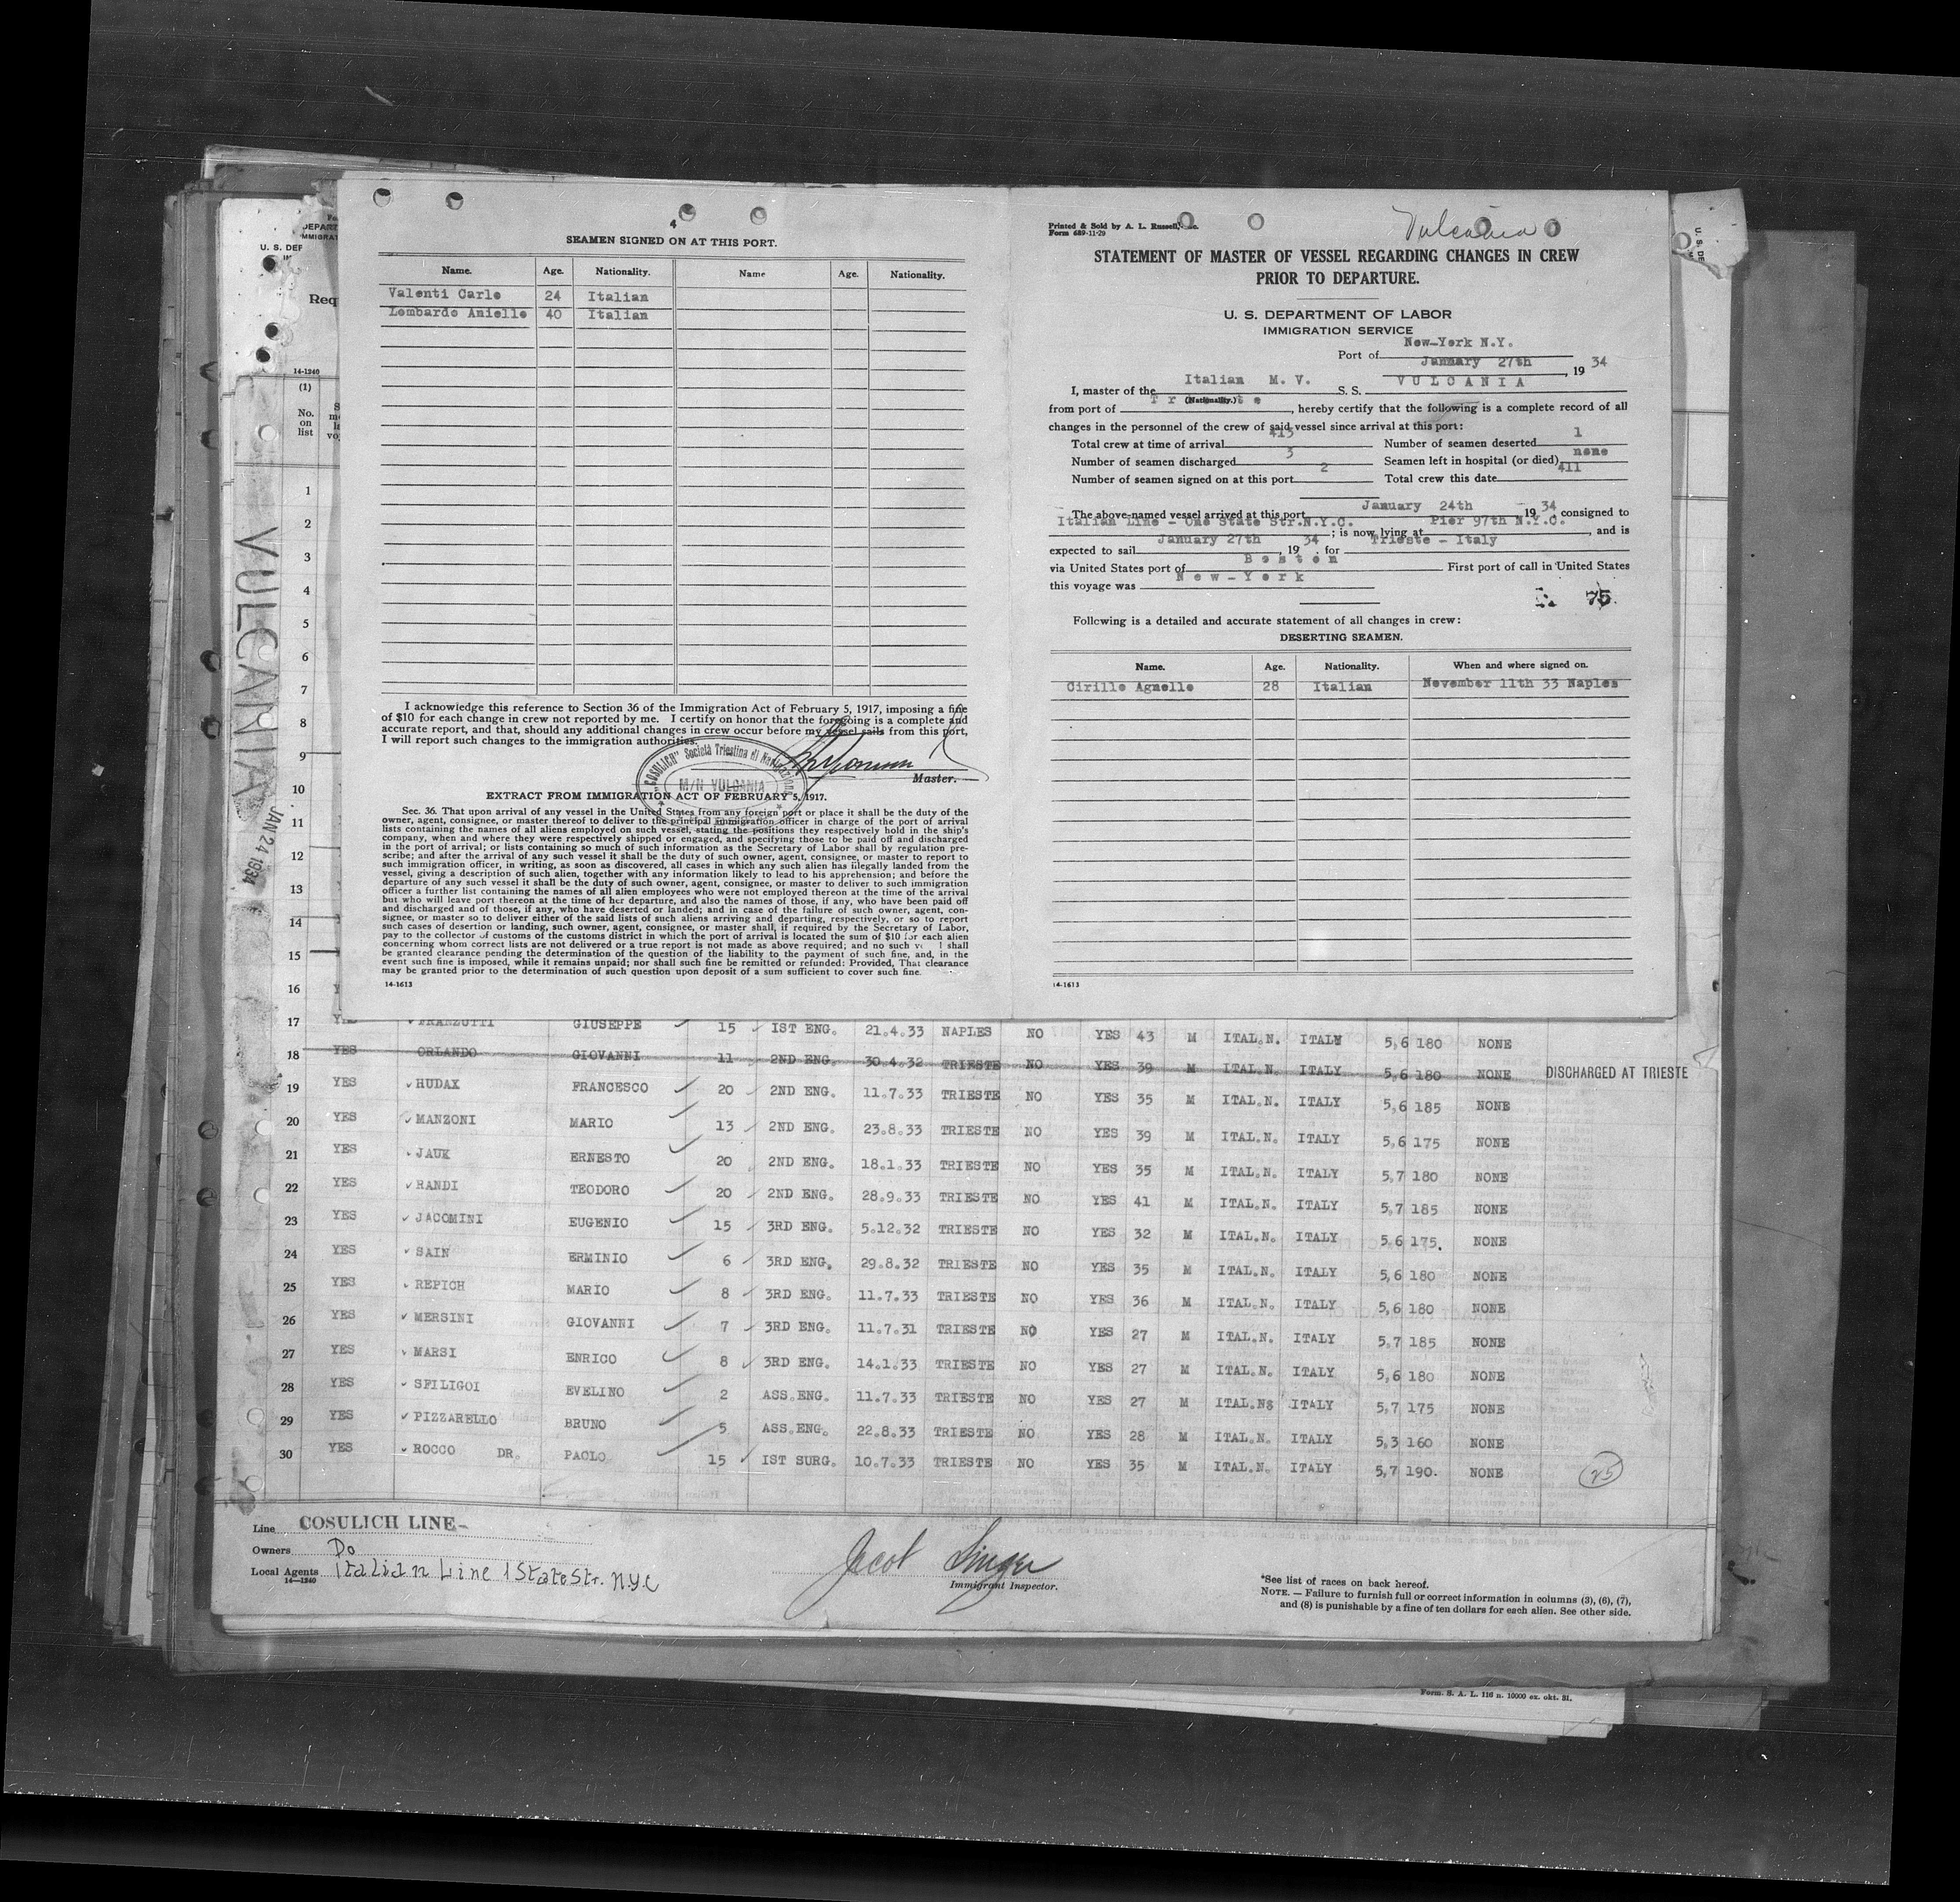 4
SEAMEN SIGNED ON AT THIS PORT.
Name. Age. Nationality. Name Age. Nationality.
Valenti Carlo 24 Italian
Lombardo Aniello 40 Italian
I acknowledge this reference to Section 36 of the Immigration Act of February 5, 1917, imposing a fine
of $10 for each change in crew not reported by me. I certify on honor that the foregoing is a complete and
accurate report, and that, should any additional changes in crew occur before my vessel sails from this port,
I will report such changes to the immigration authorities.
"COSULICH" Società Triestina di Navigazione
M/N VULCANIA
Master.
EXTRACT FROM IMMIGRATION ACT OF FEBRUARY 5, 1917.
Sec. 36. That upon arrival of any vessel in the United States from any foreign port or place it shall be the duty of the
owner, agent, consignee, or master thereof to deliver to the principal immigration officer in charge of the port of arrival
lists containing the names of all aliens employed on such vessel, stating the positions they respectively hold in the ship's
company, when and where they were respectively shipped or engaged, and specifying those to be paid off and discharged
in the port of arrival; or lists containing so much of such information as the Secretary of Labor shall by regulation pre-
scribe; and after the arrival of any such vessel it shall be the duty of such owner, agent, consignee, or master to report to
such immigration officer, in writing, as soon as discovered, all cases in which any such alien has illegally landed from the
vessel, giving a description of such alien, together with any information likely to lead to his apprehension; and before the
departure of any such vessel it shall be the duty of such owner, agent, consignee, or master to deliver to such immigration
officer a further list containing the names of all alien employees who were not employed thereon at the time of the arrival
but who will leave port thereon at the time of her departure, and also the names of those, if any, who have been paid off
and discharged and of those, if any, who have deserted or landed; and in case of the failure of such owner, agent, con-
signee, or master so to deliver either of the said lists of such aliens arriving and departing, respectively, or so to report
such cases of desertion or landing, such owner, agent, consignee, or master shall, if required by the Secretary of Labor,
pay to the collector of customs of the customs district in which the port of arrival is located the sum of $10 for each alien
concerning whom correct lists are not delivered or a true report is not made as above required; and no such shall
be granted clearance pending the determination of the question of the liability to the payment of such fine, and, in the
event such fine is imposed, while it remains unpaid; nor shall such fine be remitted or refunded: Provided, That clearance
may be granted prior to the determination of such question upon deposit of a sum sufficient to cover such fine.
14-1613
Vulcania
Printed & Sold by A. L. Russell, Inc.
Form 689-11-29
STATEMENT OF MASTER OF VESSEL REGARDING CHANGES IN CREW
PRIOR TO DEPARTURE.
U. S. DEPARTMENT OF LABOR
IMMIGRATION SERVICE
Port of New-York N.Y.
January 27th, 19 34
I, master of the Italian M. V. S. S. VULCANIA
(Nationality.)
from port of Trieste, hereby certify that the following is a complete record of all
changes in the personnel of the crew of said vessel since arrival at this port:
Total crew at time of arrival 413 Number of seamen deserted 1
Number of seamen discharged 3 Seamen left in hospital (or died) none
Number of seamen signed on at this port 2 Total crew this date 411
The above-named vessel arrived at this port January 24th 19 34, consigned to
Italian Line - One State Str.N.Y.C.; is now lying at Pier 97th N.Y.C., and is
expected to sail January 27th, 19 34. for Trieste - Italy
via United States port of Boston First port of call in United States
this voyage was New-York
75
Following is a detailed and accurate statement of all changes in crew:
DESERTING SEAMEN.
Name. Age. Nationality. When and where signed on.
Cirillo Agnello 28 Italian November 11th 33 Naples
14-1613
U. S. DEP
Req
14-1240
(1)
No.
on
list
VULCANIA
JAN 24 1934
1
2
3
4
5
6
7
8
9
10
11
12
13
14
15
16
17 YES FRANZUTTI GIUSEPPE 15 IST ENG. 21.4.33 NAPLES NO YES 43 M ITAL.N. ITALY 5,6 180 NONE
18 YES ORLANDO GIOVANNI 11 2ND ENG. 30.4.32 TRIESTE NO YES 39 M ITAL.N. ITALY 5,6 180 NONE DISCHARGED AT TRIESTE
19 YES HUDAX FRANCESCO 20 2ND ENG. 11.7.33 TRIESTE NO YES 35 M ITAL.N. ITALY 5,6 185 NONE
20 YES MANZONI MARIO 13 2ND ENG. 23.8.33 TRIESTE NO YES 39 M ITAL.N. ITALY 5,6 175 NONE
21 YES JAUK ERNESTO 20 2ND ENG. 18.1.33 TRIESTE NO YES 35 M ITAL.N. ITALY 5,7 180 NONE
22 YES RANDI TEODORO 20 2ND ENG. 28.9.33 TRIESTE NO YES 41 M ITAL.N. ITALY 5,7 185 NONE
23 YES JACOMINI EUGENIO 15 3RD ENG. 5.12.32 TRIESTE NO YES 32 M ITAL.N. ITALY 5,6 175. NONE
24 YES SAIN ERMINIO 6 3RD ENG. 29.8.32 TRIESTE NO YES 35 M ITAL.N. ITALY 5,6 180 NONE
25 YES REPICH MARIO 8 3RD ENG. 11.7.33 TRIESTE NO YES 36 M ITAL.N. ITALY 5,6 180 NONE
26 YES MERSINI GIOVANNI 7 3RD ENG. 11.7.31 TRIESTE NO YES 27 M ITAL.N. ITALY 5,7 185 NONE
27 YES MARSI ENRICO 8 3RD ENG. 14.1.33 TRIESTE NO YES 27 M ITAL.N. ITALY 5,6 180 NONE
28 YES SFILIGOI EVELINO 2 ASS.ENG. 11.7.33 TRIESTE NO YES 27 M ITAL.N8 ITALY 5,7 175 NONE
29 YES PIZZARELLO BRUNO 5 ASS.ENG. 22.8.33 TRIESTE NO YES 28 M ITAL.N. ITALY 5,3 160 NONE
30 YES ROCCO DR. PAOLO 15 IST SURG. 10.7.33 TRIESTE NO YES 35 M ITAL.N. ITALY 5,7 190. NONE
25
Line COSULICH LINE-
Owners Do
Local Agents Italian Line 1 State Str. N.Y.C
14-1240
Jacob Singer
Immigrant Inspector.
*See list of races on back hereof.
NOTE. — Failure to furnish full or correct information in columns (3), (6), (7),
and (8) is punishable by a fine of ten dollars for each alien. See other side.
Form. S. A. L. 116 n. 10000 ex. okt. 31.